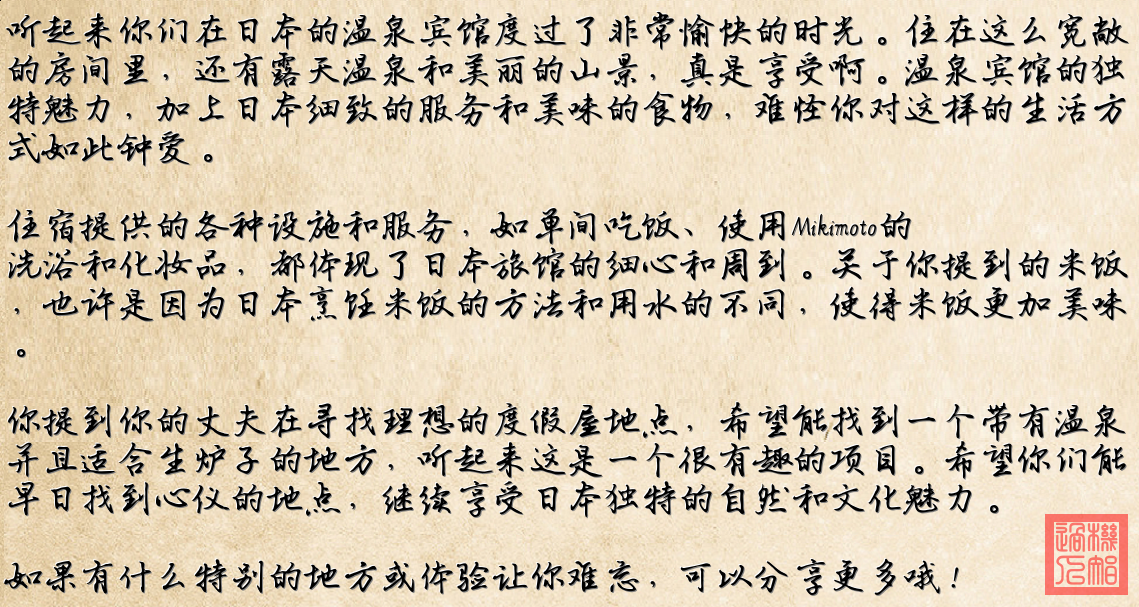 听起来你们在日本的温泉宾馆度过了非常愉快的时光。住在这么宽敞
的房间里，还有露天温泉和美丽的山景，真是享受啊。温泉宾馆的独
特魅力，加上日本细致的服务和美味的食物，难怪你对这样的生活方
式如此钟爱。
住宿提供的各种设施和服务，如单间吃饭、使用Mikimoto的
洗浴和化妆品，都体现了日本旅馆的细心和周到。关于你提到的米饭
，也许是因为日本烹饪米饭的方法和用水的不同，使得米饭更加美味
。
你提到你的丈夫在寻找理想的度假屋地点，希望能找到一个带有温泉
并且适合生炉子的地方，听起来这是一个很有趣的项目。希望你们能
早日找到心仪的地点，继续享受日本独特的自然和文化魅力。
如果有什么特别的地方或体验让你难忘，可以分享更多哦！